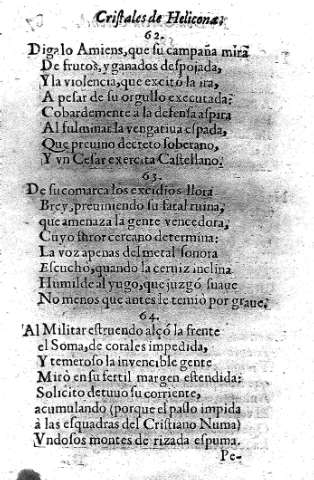 Cristales de Helicona;
62.
Digalo Amiens, que su campaña mira
De frutos, y ganados despojada,
Y la violencia, que excitò la ira,
A pesar de su orgullo executada:
Cobardemente à la defensa aspira
Al fulminar la vengatiua espada,
Que preuino decreto soberano,
Y vn Cesar exercita Castellano.
63.
De su comarca los excidios llora
Brey, preuiniendo su fatal ruina,
que amenaza la gente vencedora,
Cuyo furor cercano determina:
La voz apenas del metal sonora
Escucho, quando la ceruiz inclina
Humilde al yugo, que juzgó suaue
No menos que antes le temiò por graue.
64.
Al Militar estruendo alçó la frente
el Soma, de corales impedida,
Y temeroso la invencible gente
Mirò en su fertil margen estendida:
Solicito detuuo su corriente,
acumulando (porque el passo impida
à las esquadras del Cristiano Numa)
Vndosos montes de rizada espuma.
Pe-